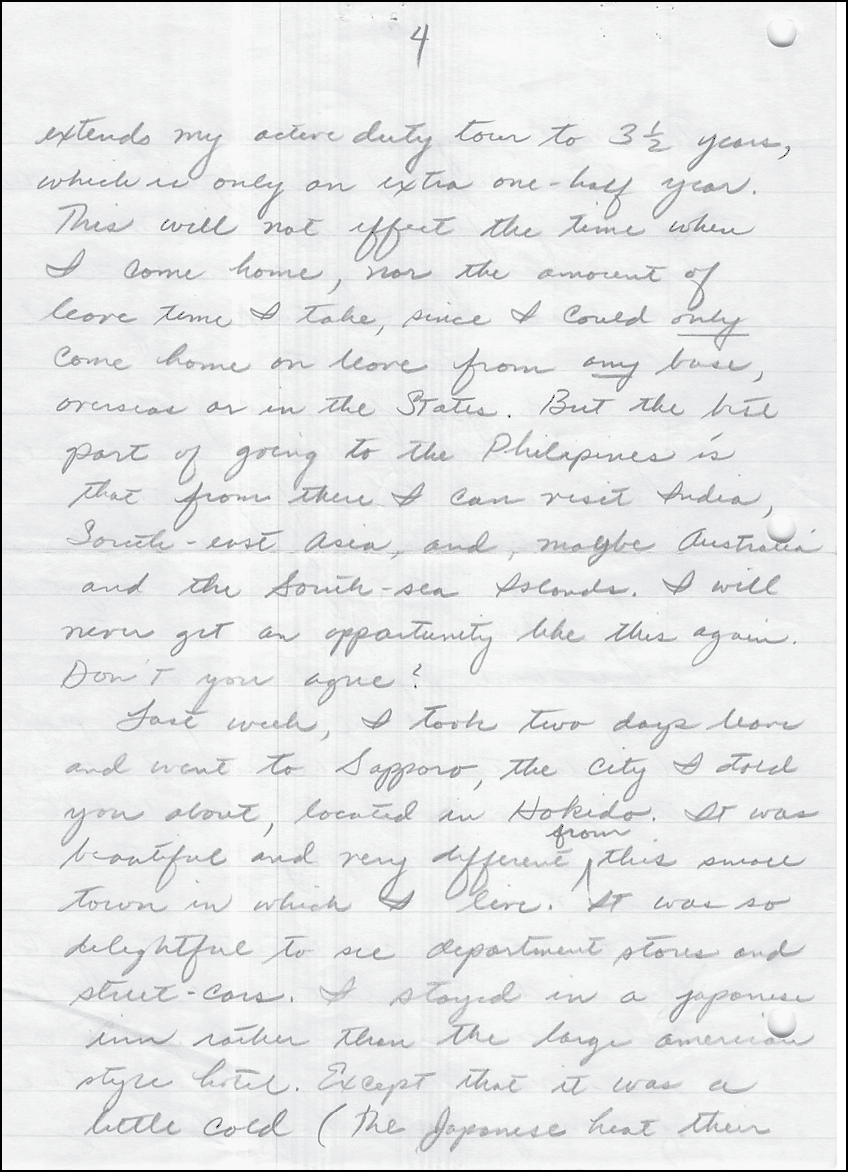 4
extends my active duty tour to 3 1/2 years,
which is only an extra one-half year.
This will not effect the time when
I come home, nor the amount of
leave time I take, since I could only
come home on leave from any base,
overseas or in the States. But the best
part of going to the Philipines is
that from there I can visit India,
South-east Asia, and, maybe Australia
and the South-sea Islands. I will
never get an opportunity like this again.
Don't you agree?
Last week, I took two days leave
and went to Sapporo, the city I told
you about, located in Hokido. It was
from
beautiful and very different this small
town in which I live. It was so
delightful to see department stores and
street-cars. I stayed in a japanese
inn rather than the large american
style hotel. Except that it was a
little cold (The Japanese heat their